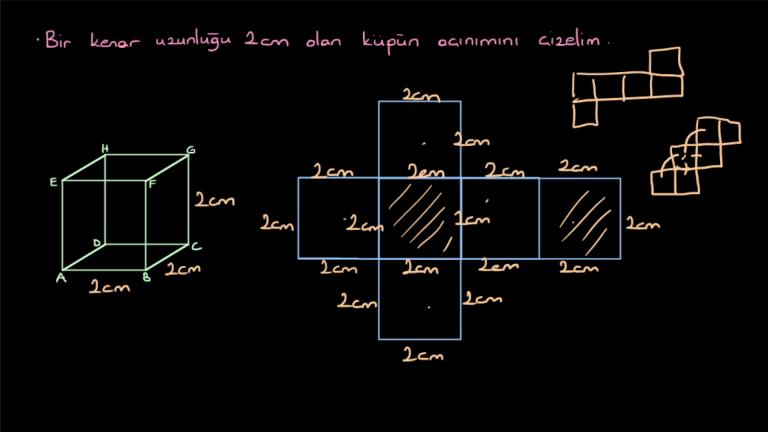 · Bir kenar uzunluğu 2cm olan küpün açınımını çizelim.
2cm
2cm
2cm 2cm 2cm 2cm
H G
E F
2cm
2cm 2cm 2cm 2cm
D C
A B
2cm
2cm
2cm 2cm 2cm 2cm
2cm 2cm
2cm